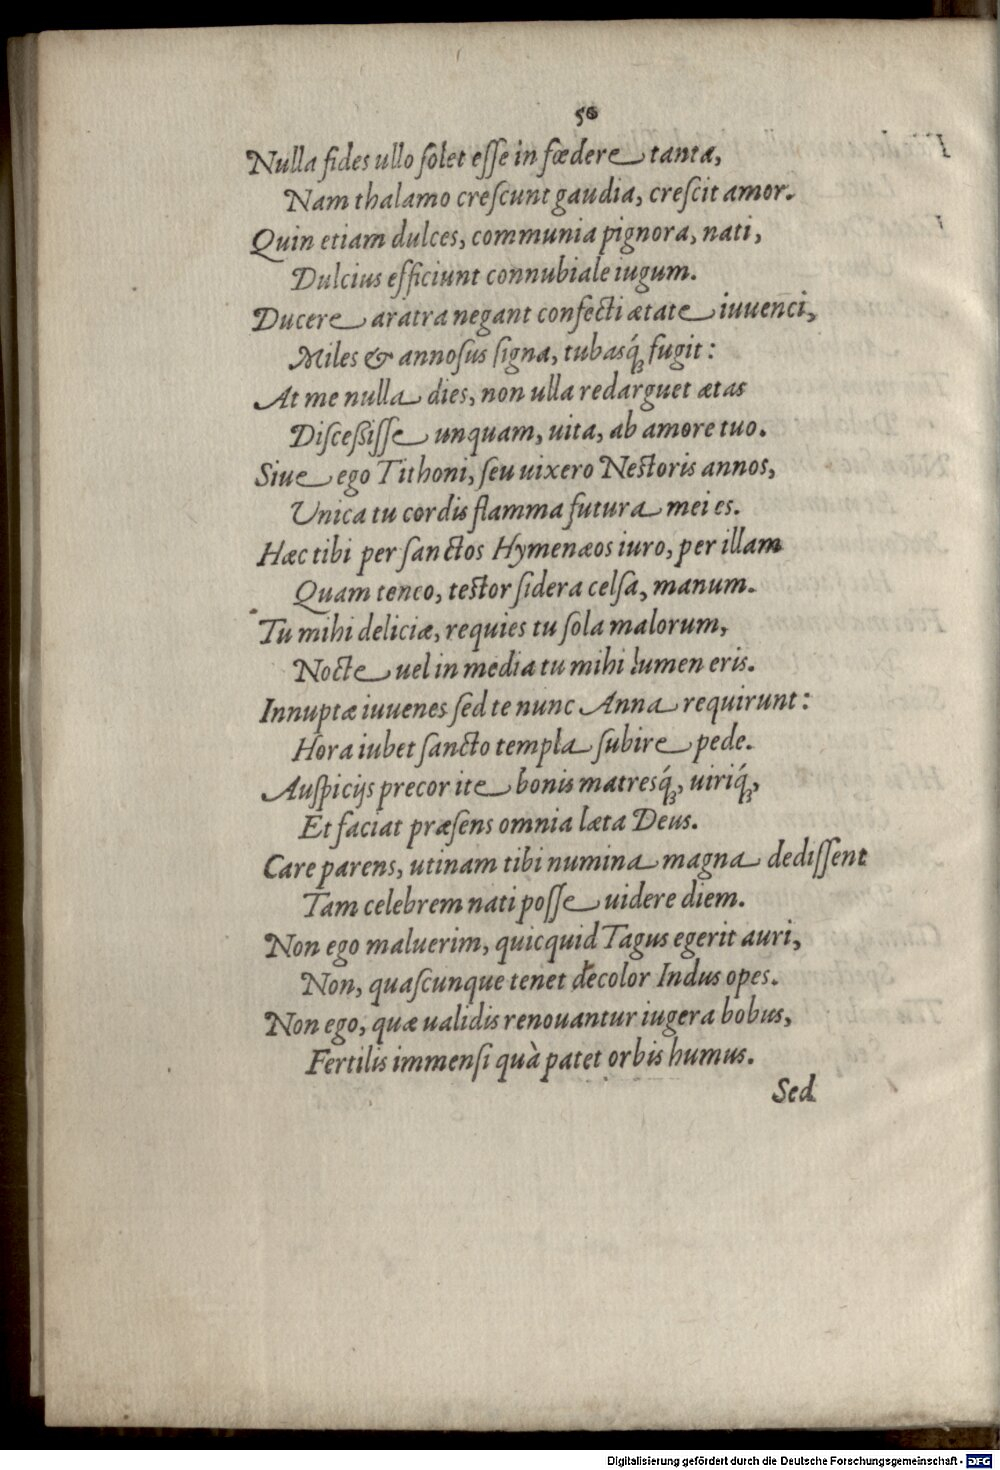 50
Nulla fides ullo ſolet eſſe in fœdere tanta,
Nam thalamo creſcunt gaudia, creſcit amor.
Quin etiam dulces, communia pignora, nati,
Dulcius efficiunt connubiale iugum.
Ducere aratra negant confecti ætate iuuenci,
Miles & annoſus ſigna, tubasq́; fugit:
At me nulla dies, non ulla redarguet ætas
Diſceſsiſſe unquam, uita, ab amore tuo.
Siue ego Tithoni, ſeu uixero Nestoris annos,
Unica tu cordis flamma futura mei es.
Hæc tibi per ſanctos Hymenæos iuro, per illam
Quam teneo, testor ſidera celſa, manum.
Tu mihi deliciæ, requies tu ſola malorum,
Nocte uel in media tu mihi lumen eris.
Innuptæ iuuenes ſed te nunc Anna requirunt:
Hora iubet ſancto templa ſubire pede.
Auſpicijs precor ite bonis matresq́;, uiriq́;,
Et faciat præſens omnia læta Deus.
Care parens, utinam tibi numina magna dediſſent
Tam celebrem nati poſſe uidere diem.
Non ego maluerim, quicquid Tagus egerit auri,
Non, quaſcunque tenet decolor Indus opes.
Non ego, quæ ualidis renouantur iugera bobus,
Fertilis immenſi quà patet orbis humus.
Sed
Digitalisierung gefördert durch die Deutsche Forschungsgemeinschaft - DFG